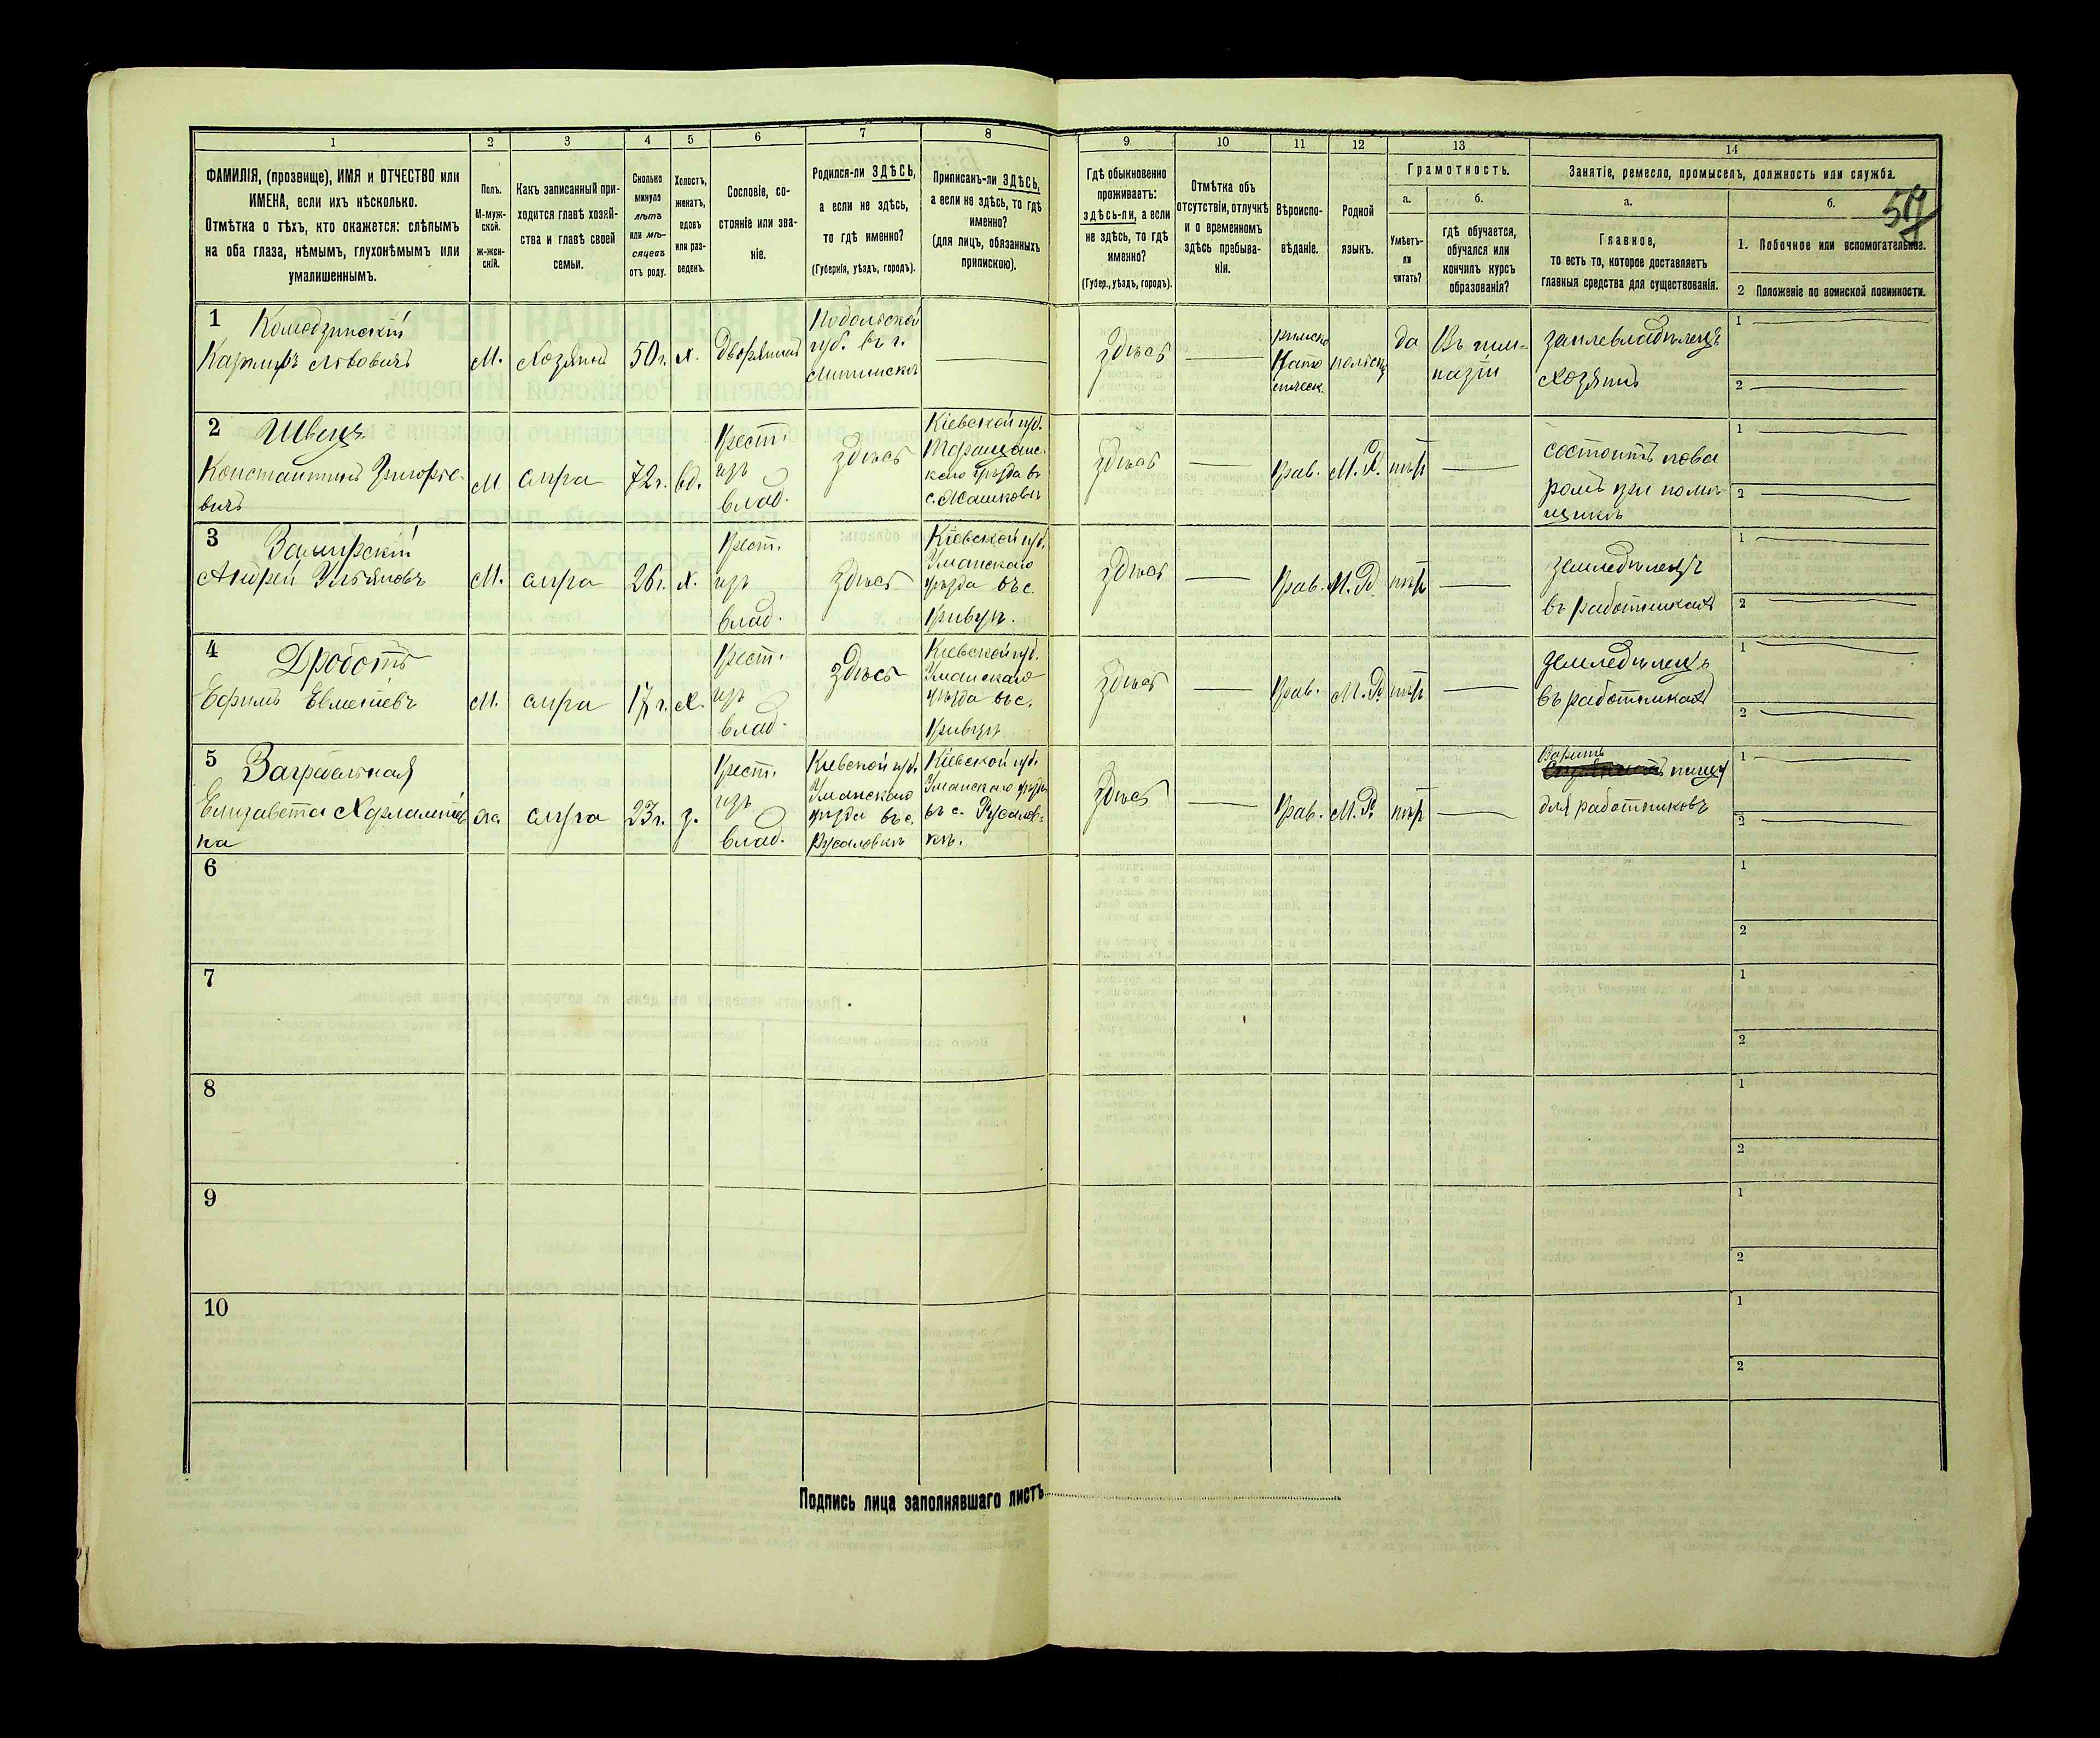 1
2
3
4
5
6
7
8
9
10
11
12
13
14
ФАМИЛІЯ, (прозвище), ИМЯ и ОТЧЕСТВО или
ИМЕНА, если ихъ нѣсколько.
Отмѣтка о тѣхъ, кто окажется: слѣпымъ
на оба глаза, нѣмымъ, глухонѣмымъ или
умалишеннымъ.
Полъ.
М-муж-
ской.
ж-жен-
скій.
Какъ записанный при-
ходится главѣ хозяй-
ства и главѣ своей
семьи.
Сколько
минуло
лѣтъ
или мѣ-
сяцевъ
отъ роду.
Холостъ,
женатъ,
вдовъ
или раз-
веденъ.
Сословіе, со-
стояніе или зва-
ніе.
Родился-ли ЗДѢСЬ,
а если не здѣсь,
то гдѣ именно?
(Губернія, уѣздъ, городъ).
Приписанъ-ли ЗДѢСЬ,
а если не здѣсь, то гдѣ
именно?
(для лицъ, обязанныхъ
припискою).
Гдѣ обыкновенно
проживаетъ:
здѣсь-ли, а если
не здѣсь, то гдѣ
именно?
(Губер., уѣздъ, городъ).
Отмѣтка объ
отсутствіи, отлучкѣ
и о временномъ
здѣсь пребыва-
ніи.
Вѣроиспо-
вѣданіе.
Родной
языкъ.
Грамотность.
а.
Умѣетъ-
ли
читать?
б.
гдѣ обучается,
обучался или
кончилъ курсъ
образованія?
Занятіе, ремесло, промыселъ, должность или служба.
а.
Главное,
то есть то, которое доставляетъ
главныя средства для существованія.
б.
1. Побочное или вспомогательное.
2 Положеніе по воинской повинности.
1
Казимиръ Львовичъ
М.
Хозяинъ
50 г.
х.
дворянинъ
Подольской
губ. въ г.
Литинскѣ
здѣсь
римско
Като
лическ.
польскі
да
Въ гим-
назіи
землевладѣлецъ
хозяинъ
1
2
2 Швецъ
Константинъ Григорье-
вичъ
М
слуга
72 г.
вд.
Крест.
изъ
влад.
здѣсь
Кіевской губ.
Таращанс-
каго уѣзда въ
с. Жашковѣ
здѣсь
Прав.
М. Р.
нѣт
состоитъ пова
ромъ при помѣ
щикѣ
1
2
3
Андрей Ульяновъ
М.
слуга
26 г.
х.
Крест.
изъ
влад.
здѣсь
Кіевской губ.
Уманскаго
уѣзда въ с.
здѣсь
Прав.
М. Р.
нѣт
земледѣлецъ
въ работникахъ
1
2
4 Дроботъ
Ефимъ Евменіевъ
М.
слуга
17 г.
х.
Крест.
изъ
влад.
здѣсь
Кіевской губ.
Уманскаго
уѣзда въ с.
здѣсь
Прав.
М. Р.
нѣт
земледѣлецъ
въ работникахъ
1
2
5
Елизавета Харлампіев
на
ж.
слуга
23 г.
Крест.
изъ
влад.
Кіевской губ.
Уманскаго
уѣзда въ с.
Русаловкѣ
Кіевской губ.
Уманскаго уѣзда
въ с. Русалов-
кѣ.
здѣсь
Прав.
М. Р.
нѣт
Варитъ
пищу
для работниковъ
1
2
6
1
2
7
1
2
8
1
2
9
1
2
10
1
2
Подпись лица заполнявшаго листъ